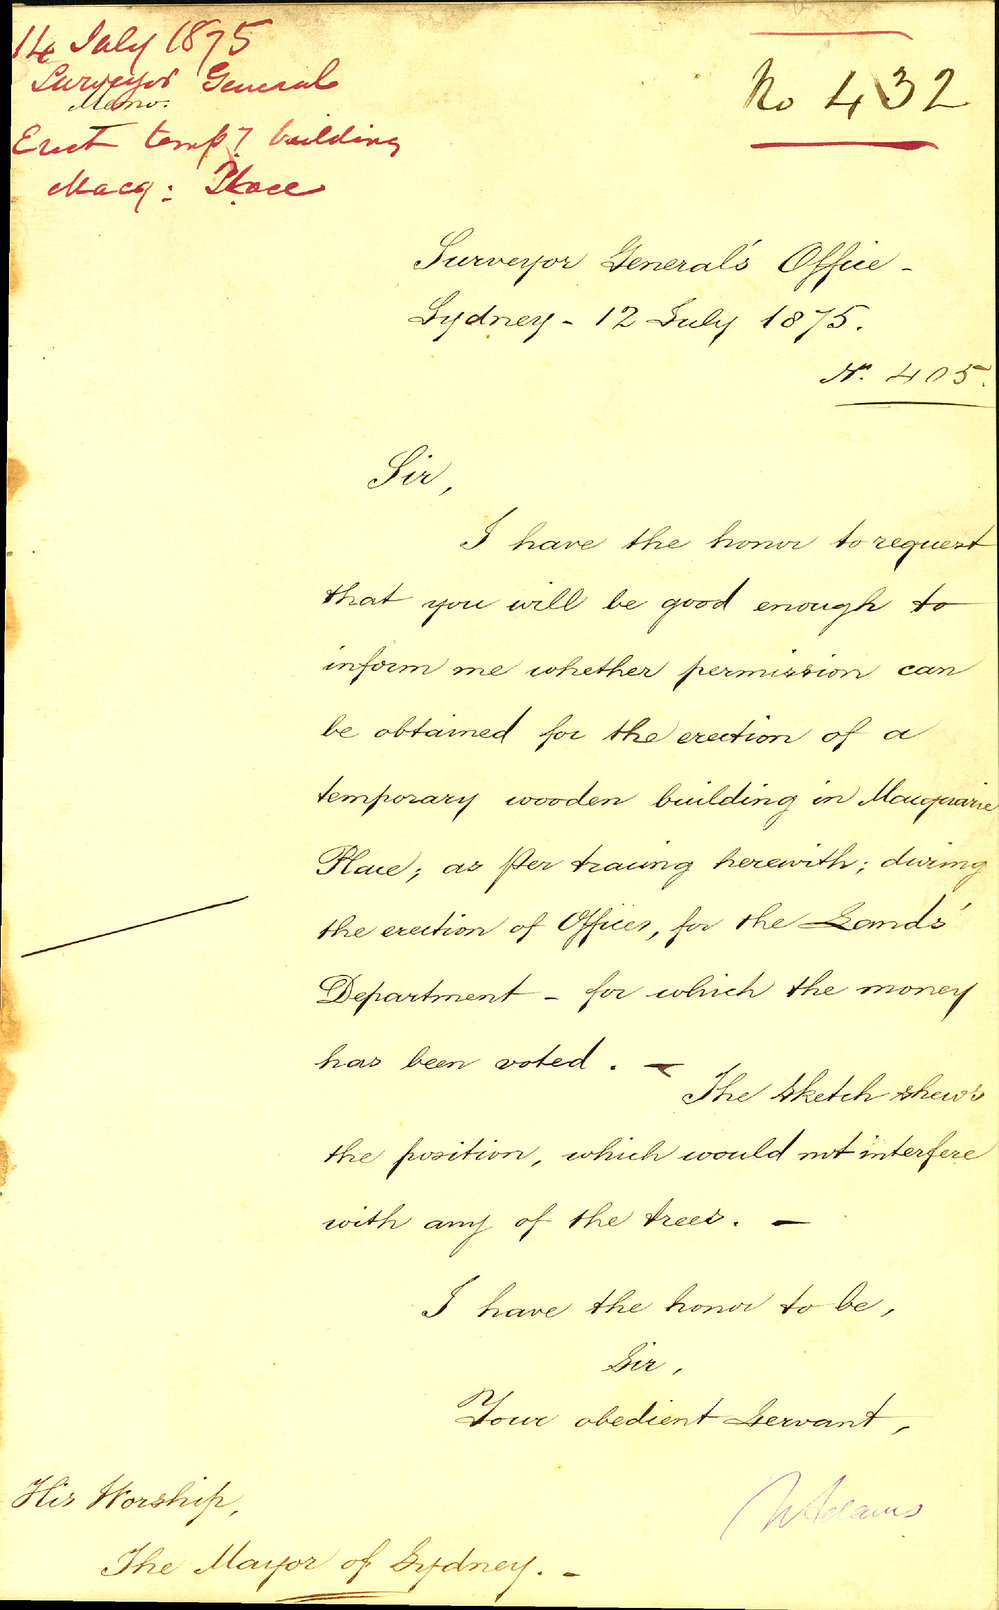 14 July 1875
Surveyor General
Memo.
Erect tempy building
Macq: Place
No 432
Surveyor General's Office -
Sydney - 12 July 1875.
No. 405.
Sir,
I have the honor to request
that you will be good enough to
inform me whether permission can
be obtained for the erection of a
temporary wooden building in Macquarie
Place; as per tracing herewith; during
the erection of Offices, for the Lands'
Department - for which the money
has been voted. -
The sketch shews
the position, which would not interfere
with any of the trees. -
I have the honor to be,
Sir,
Your obedient Servant,
Adams
His Worship,
The Mayor of Sydney. -